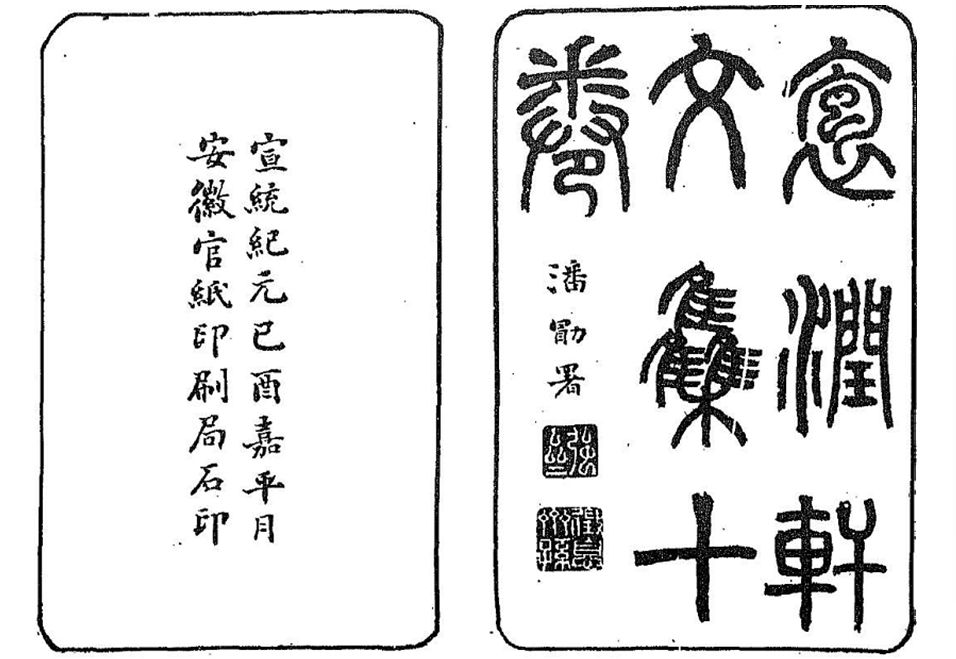 袌潤軒
文集十
卷
潘署
宣統紀元己酉嘉平月
安徽官紙印刷局石印